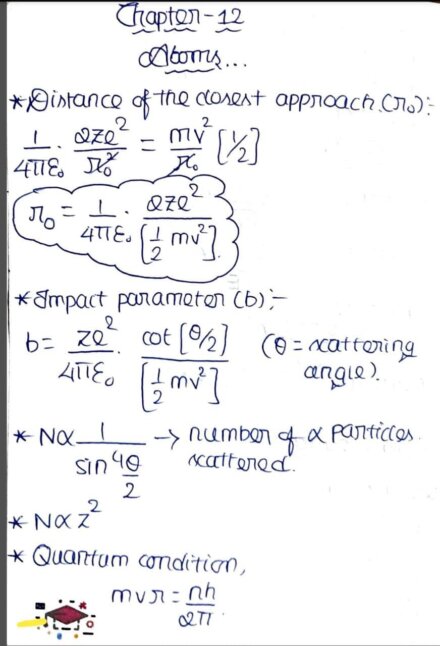 Chapter-12
Atoms...
* Distance of the closest approach (r₀):-
1/4πε₀ · 2ze²/r₀² = mv²/r₀ [1/2]
r₀ = 1/4πε₀ · 2ze²/[1/2 mv²]
* Impact parameter (b):-
b = ze²/4πε₀ · cot[θ/2]/[1/2 mv²] (θ = scattering angle).
* N∝ 1/sin⁴θ/2 → number of α particles scattered.
* N∝z²
* Quantum condition,
mvr = nh/2π